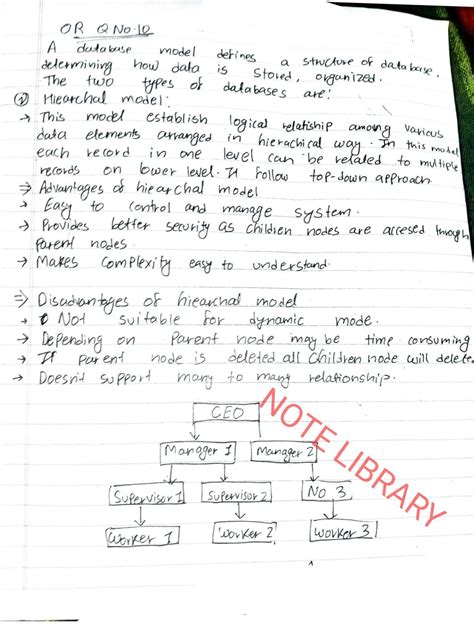 OR Q No.10
A database model defines a structure of database,
determining how data is stored, organized.
The two types of databases are:
① Hiearchal model:
→ This model establish logical relatiship among various
data elements arranged in hierachical way. In this model
each record in one level can be related to multiple
records on lower level. It follow top-down approach
⇒ Advantages of hiearchal model
→ Easy to control and manage system.
→ Provides better security as children nodes are accesed through
Parent nodes.
→ Makes complexity easy to understand.
⇒ Disadvantages of hiearchal model
→ Not suitable for dynamic mode.
→ Depending on Parent node may be time consuming
→ If parent node is deleted all children node will delete.
→ Doesn't support many to many relationship.
CEO
Manager 1 Manager 2
Supervisor 1 Supervisor 2 No 3
Worker 1 Worker 2 Worker 3
NOTE LIBRARY